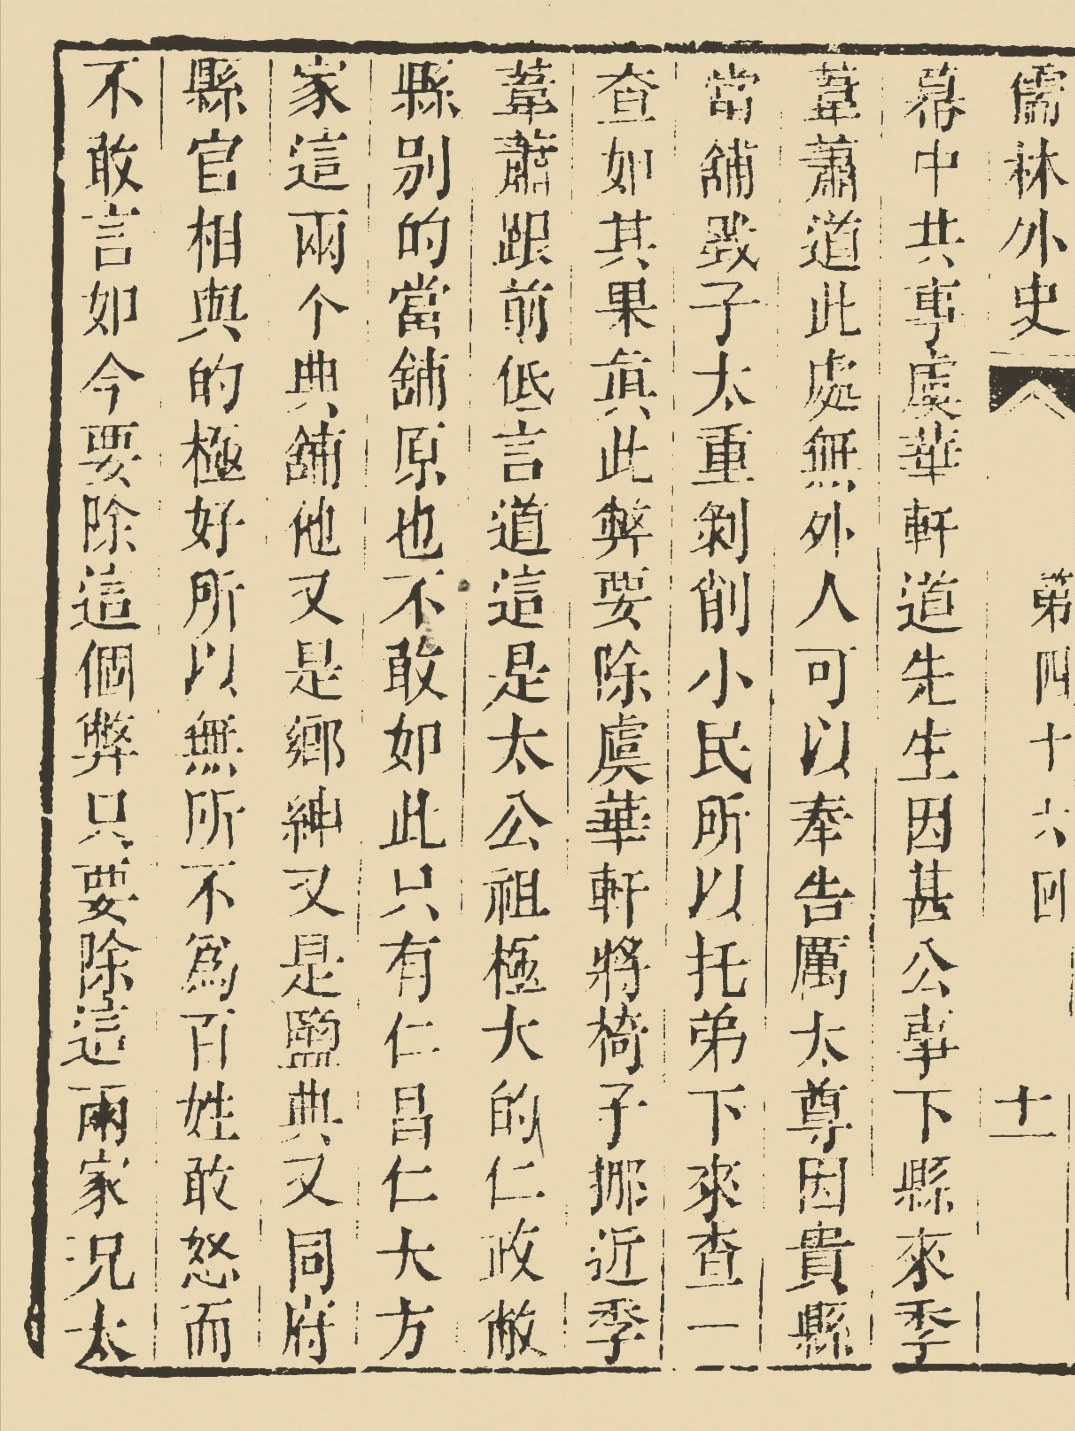 儒林外史 第四十六回 十一
幕中共事虞華軒道先生因甚公事下縣來季
葦蕭道此處無外人可以奉告厲太尊因貴縣
當舖戥子太重剝削小民所以托弟下來查一
查如其果真此弊要除虞華軒將椅子挪近季
葦蕭跟前低言道這是太公祖極大的仁政敝
縣别的當舖原也不敢如此只有仁昌仁大方
家這兩个典舖他又是鄉紳又是鹽典又同府
縣官相與的極好所以無所不爲百姓敢怒而
不敢言如今要除這個弊只要除這兩家况太